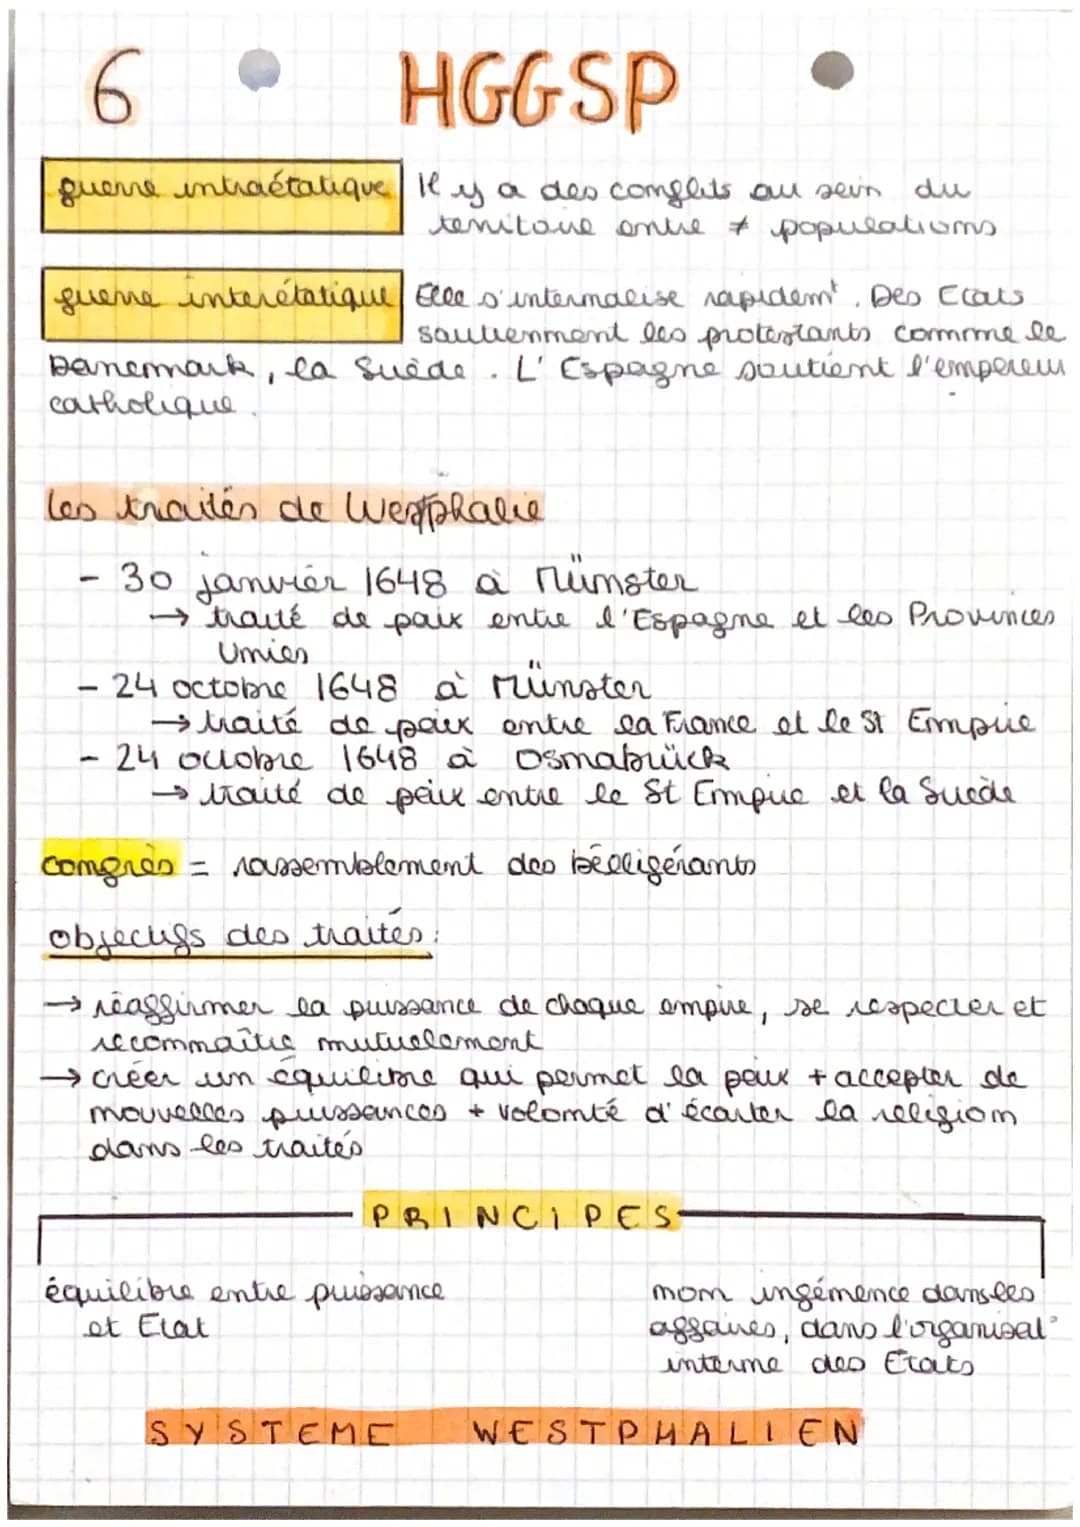 6 HGGSP
guerre intraétatique Il y a des conflits au sein du
territoire entre ≠ populations
guerre interétatique Elle s'internalise rapidemt. Des Etats
soutiennent les protestants comme le
Danemark, la Suède. L'Espagne soutient l'empereur
catholique.
les traités de Westphalie
- 30 janvier 1648 à Münster
→ traité de paix entre l'Espagne et les Provinces
Unies
- 24 octobre 1648 à Münster
→ traité de paix entre la France et le St Empire
- 24 octobre 1648 à Osnabrück
→ traité de paix entre le St Empire et la Suède
congrès = rassemblement des bélligérants
objectifs des traités:
→ réaffirmer la puissance de chaque empire, se respecter et
reconnaître mutuelement
→ créer un équilibre qui permet la paix + accepter de
nouvelles puissances + volonté d'écarter la religion
dans les traités
PRINCIPES
équilibre entre puissance
et Etat
non ingérence dans les
affaires, dans l'organisat°
interne des Etats
SYSTEME WESTPHALIEN